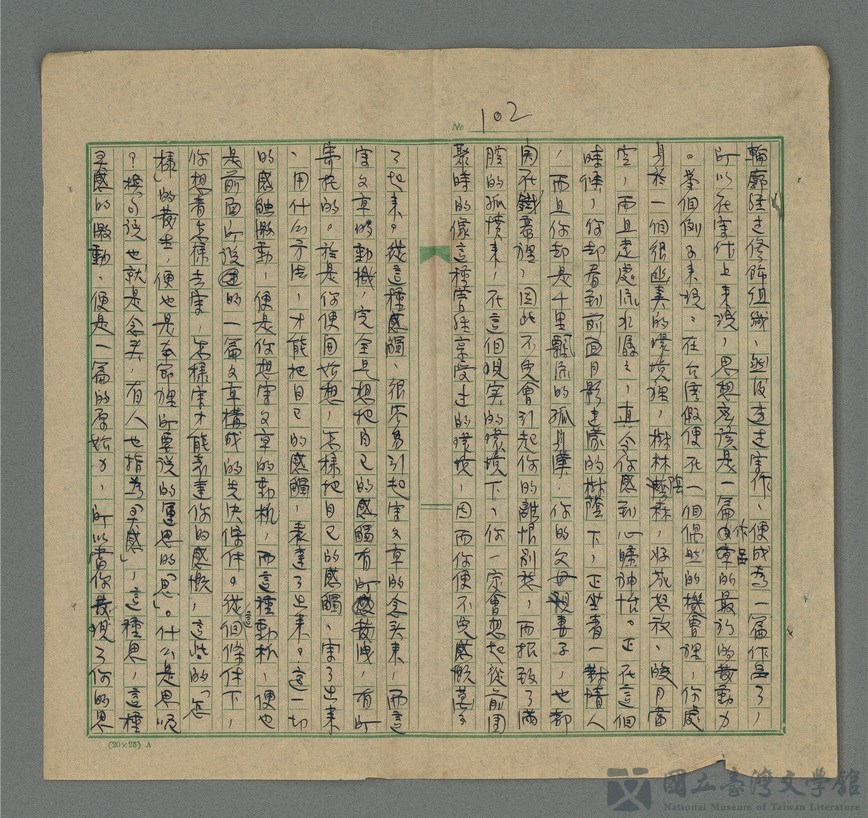 No 102
輪廓經過修飾組織,然後透過寫作,便成為一篇作品了,
所以在寫作上來說,思想應該是一篇作品的最初的發動力
。舉個例子來說:在台灣假使在一個偶然的機會裡,你處
身於一個很幽美的環境裡,樹林陰森,好花怒放,皎月當
空,而且遠處流水潺々,真令你感到心曠神怡。正在這個
時候,你卻看到前面月影朦朧的樹蔭下,正坐着一對情人
,而且你却是千里飄流的孤身漢,你的父母親妻子,也都
困在鐵幕裡,因此不免會引起你的離恨別愁,而振致了滿
腔的孤憤來,在這個現實的環境下,你一定會想起從前團
聚時的像這種曾經享受過的環境,因而你便不免感慨萬分
了起來。從這種感觸,很容易引起寫文章的念头來,而這
寫文章的動機,完全是想把自己的感觸有所發洩,有所
寄託的。於是你便開始想,怎樣把自己的感觸,寫了出來
,用什么方法,才能把自己的感觸,表達了出來。這一切
的感触激動,便是你想寫文章的動机,而這種動机,便也
是前面所說過的一篇文章構成的先決條件。從這個條件下,
你想着怎樣去寫,怎樣寫才能表達你的感慨,這些的「怎
樣」的發生,便也是本節裡所要說的運思的「思」。什么是思呢
?換句話說也就是念头,有人也指為「灵感」,這種思,這種
灵感的激動,便是一篇的原始力,所以當你發現了你的思
(20×25) A
國立臺灣文學館
National Museum of Taiwan Literature